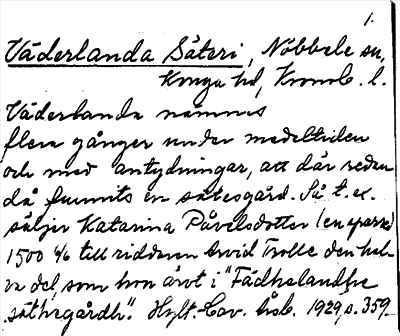 1.
Väderlanda Säteri, Nöbbele sn,
Konga hd, Kronob. l.
Väderlanda nämnes
flera gånger under medeltiden
och med antydningar, att där redan
då funnits en sätesgård. Så t. ex.
säljer Katarina Påvelsdotter
1500 4/6 till riddaren Arvid Trolle den hal-
va del, som hon ärvt i "Fädhelandhe
säthegårdh". Hylt.-Cav. årsb. 1929, s. 359.